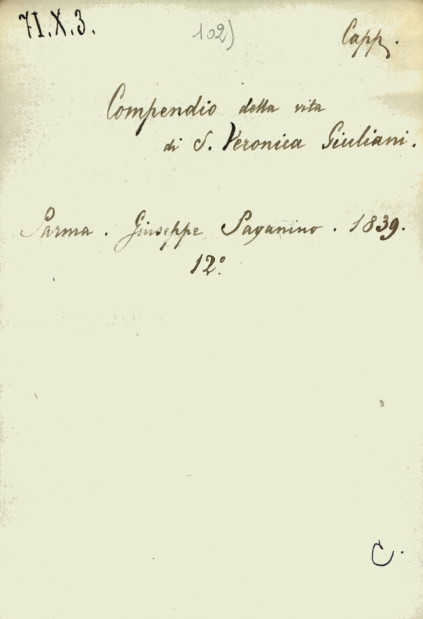 71.X.3. 102) Capp.
Compendio della vita
di S. Veronica Giuliani.
Parma. Giuseppe Paganino. 1839.
12°
C.